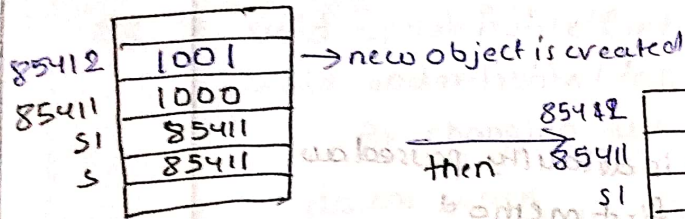 85412 1001 → new object is created
85411 1000
S1 85411
S 85411
then
85412
85411
S1